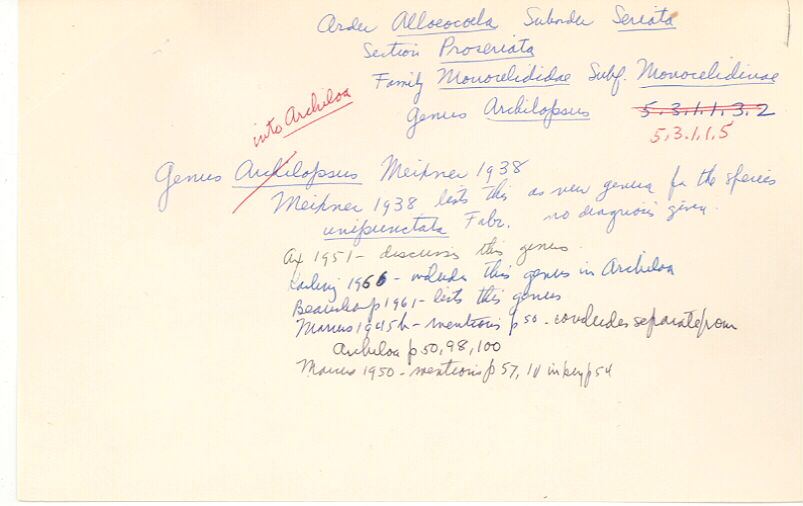 Order Alloeocoela Suborder Seriata
Section Proseriata
Family Monocelididae Subf. Monocelidinae
Genus Archilopsus 5.3.1.1.3.2
5.3.1.1.5
into Archiloa
Genus Archilopsus Meixner 1938
Meixner 1938 lists this as new genera for the species
unipunctata Fabr. no diagnosis given.
Ax 1951 - discusses this genus
Karling 1966 - includes this genus in Archiloa
Beauchamp 1961 - lists this genus
Marcus 1945b - mentions p 50 - concludes separate from
Archiloa p 50, 98, 100
Marcus 1950 - mentions p 57, in key p 54